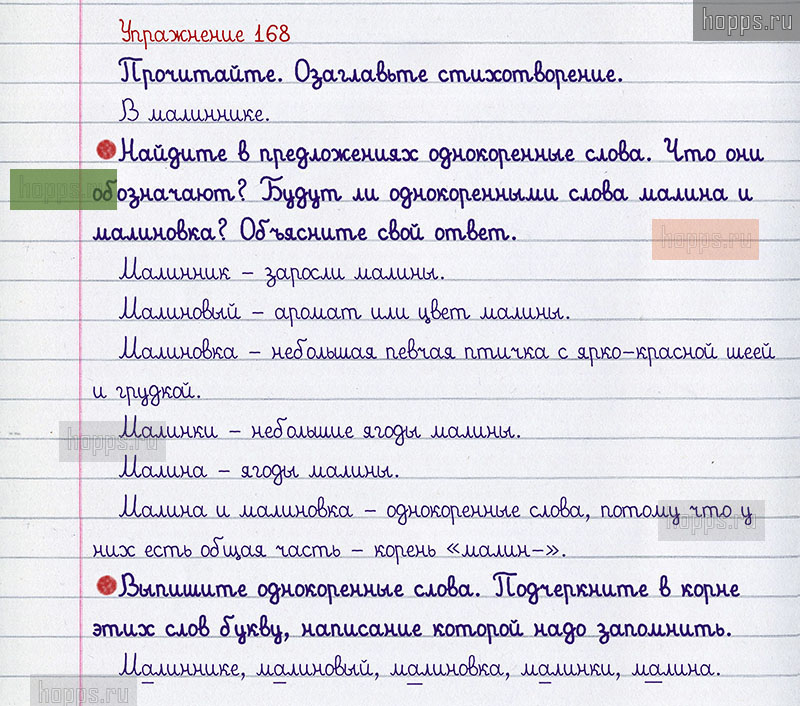 hopps.ru
Упражнение 168
Прочитайте. Озаглавьте стихотворение.
В малиннике.
Найдите в предложениях однокоренные слова. Что они
обозначают? Будут ли однокоренными слова малина и
hopps.ru
малиновка? Объясните свой ответ.
hopps.ru
Малинник – заросли малины.
Малиновый – аромат или цвет малины.
Малиновка – небольшая певчая птичка с ярко-красной шеей
и грудкой.
Малинки – небольшие ягоды малины.
hopps.ru
Малина – ягоды малины.
Малина и малиновка – однокоренные слова, потому что у
hopps.ru
них есть общая часть – корень «малин-».
Выпишите однокоренные слова. Подчеркните в корне
этих слов букву, написание которой надо запомнить.
Малиннике, малиновый, малиновка, малинки, малина.
hopps.ru